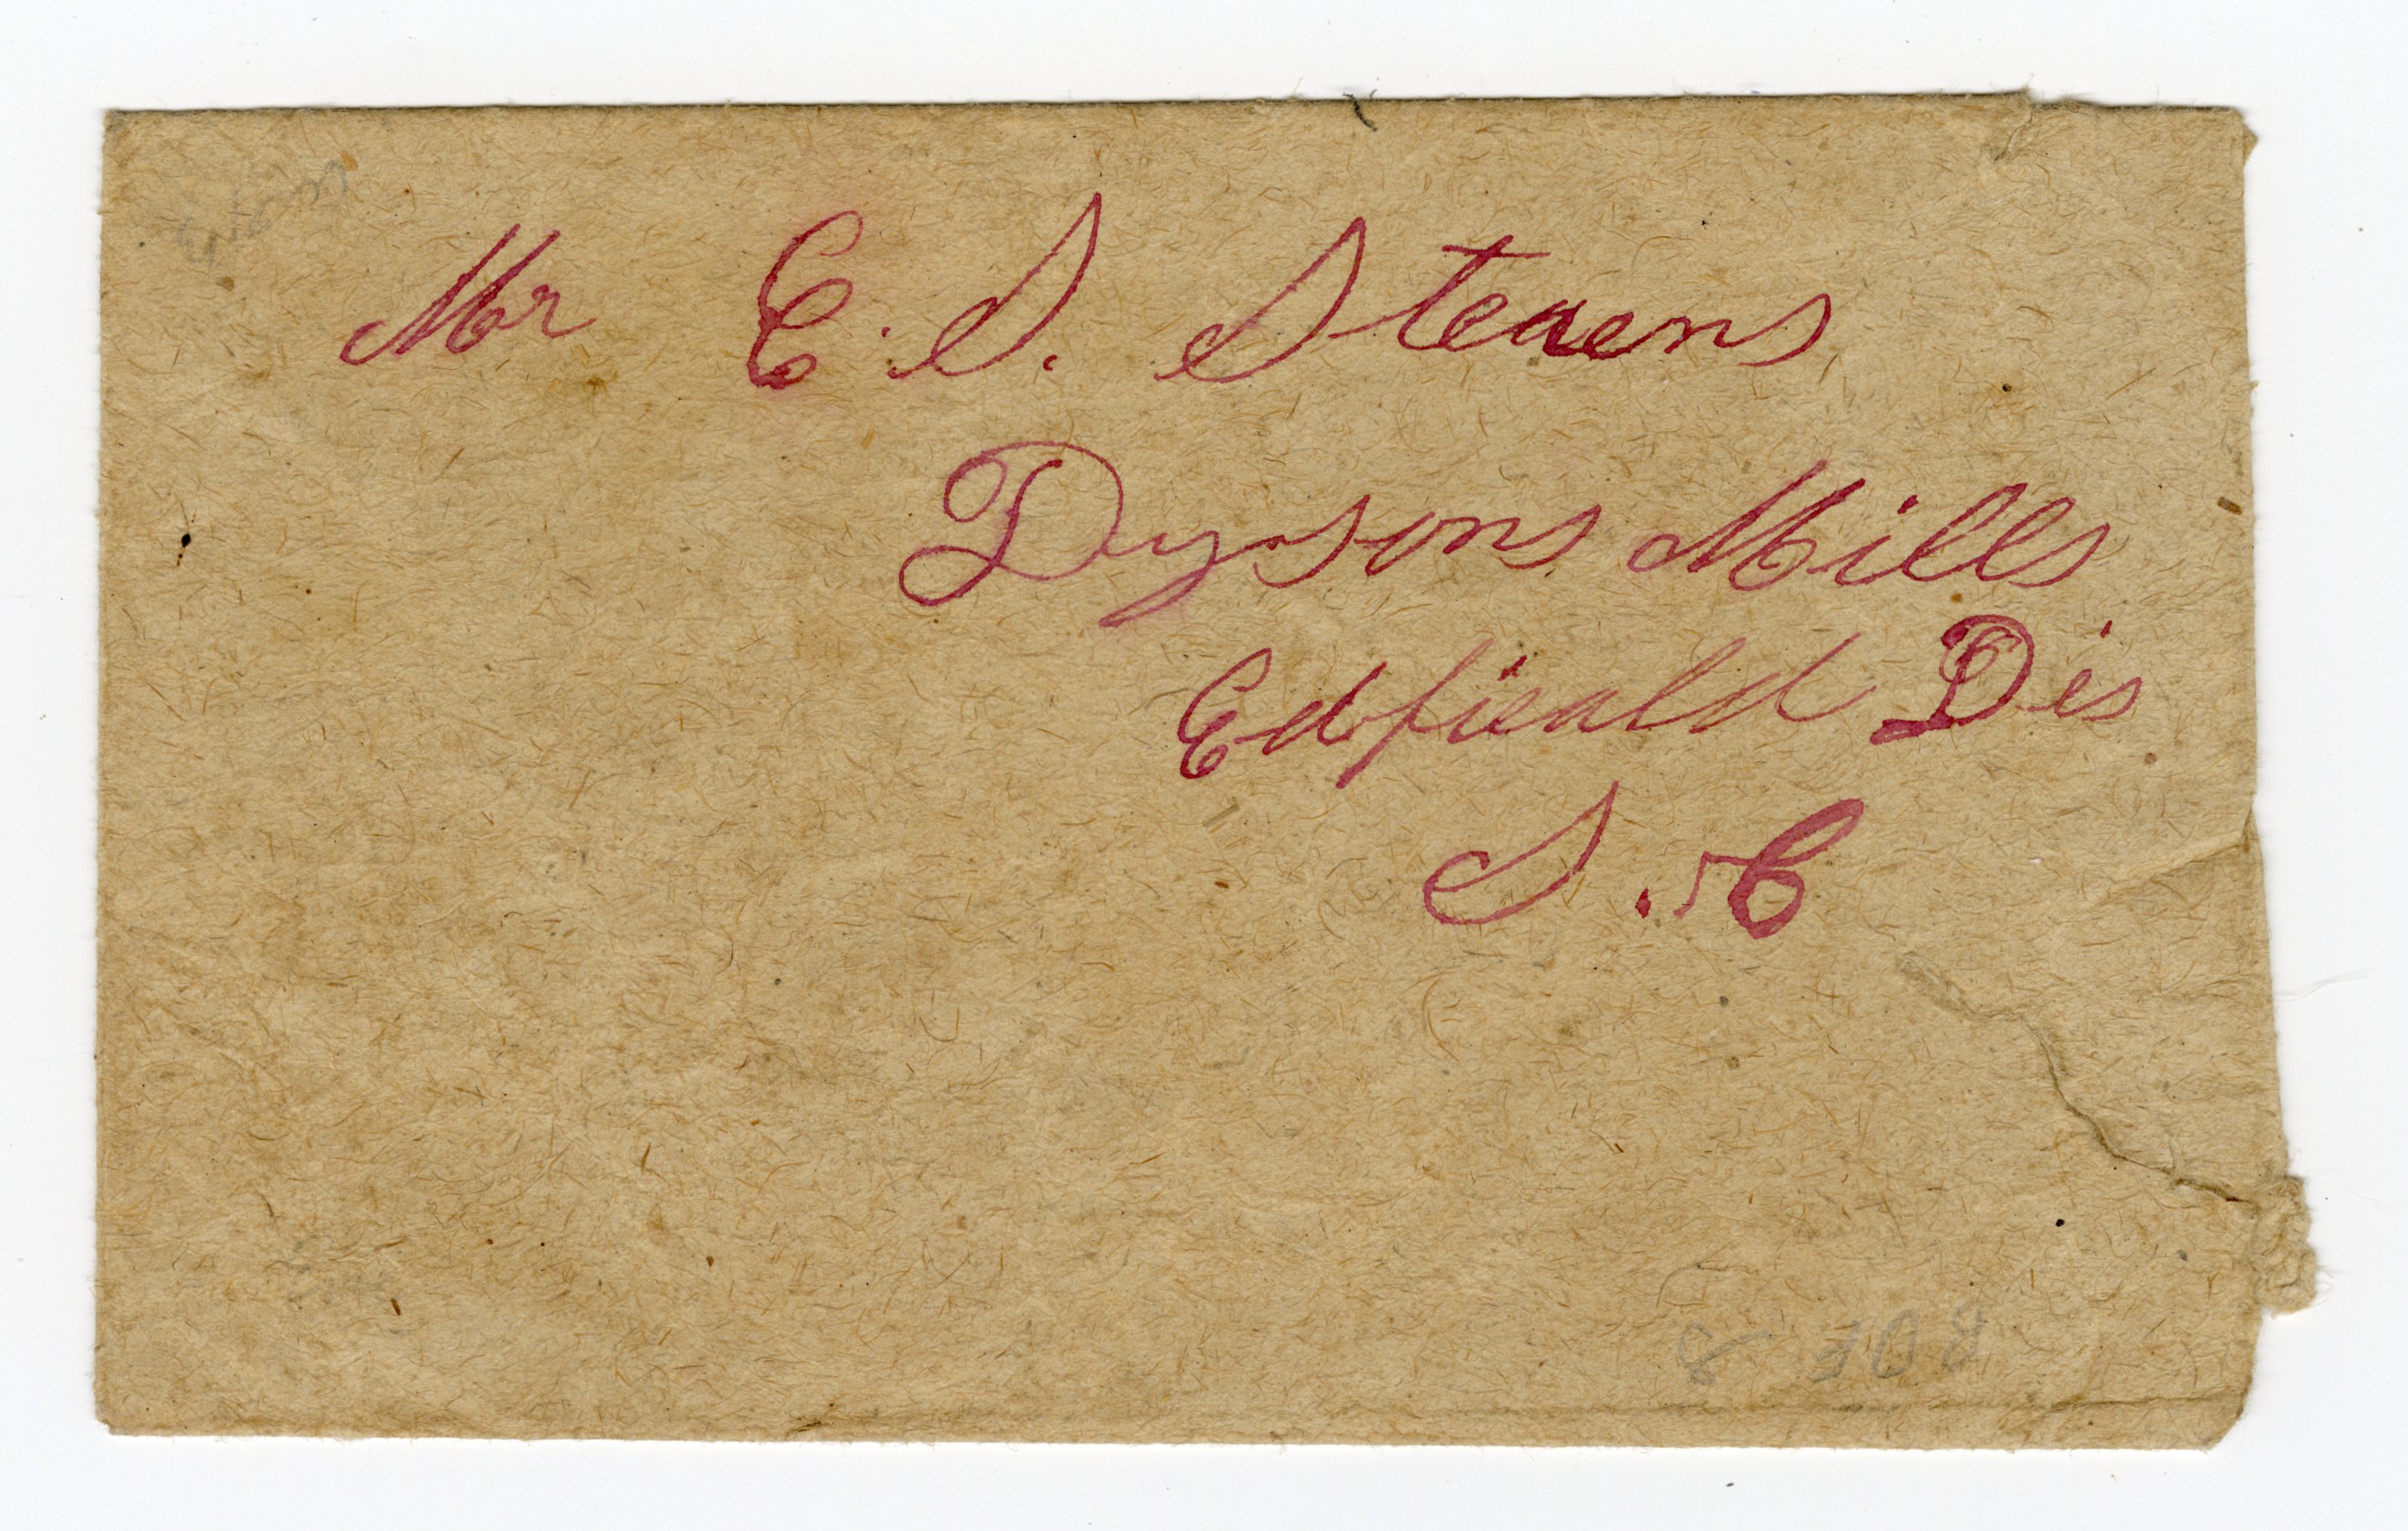 Mr E. S. Stevens
Dysons Mills
Edfieald Dis
S. C